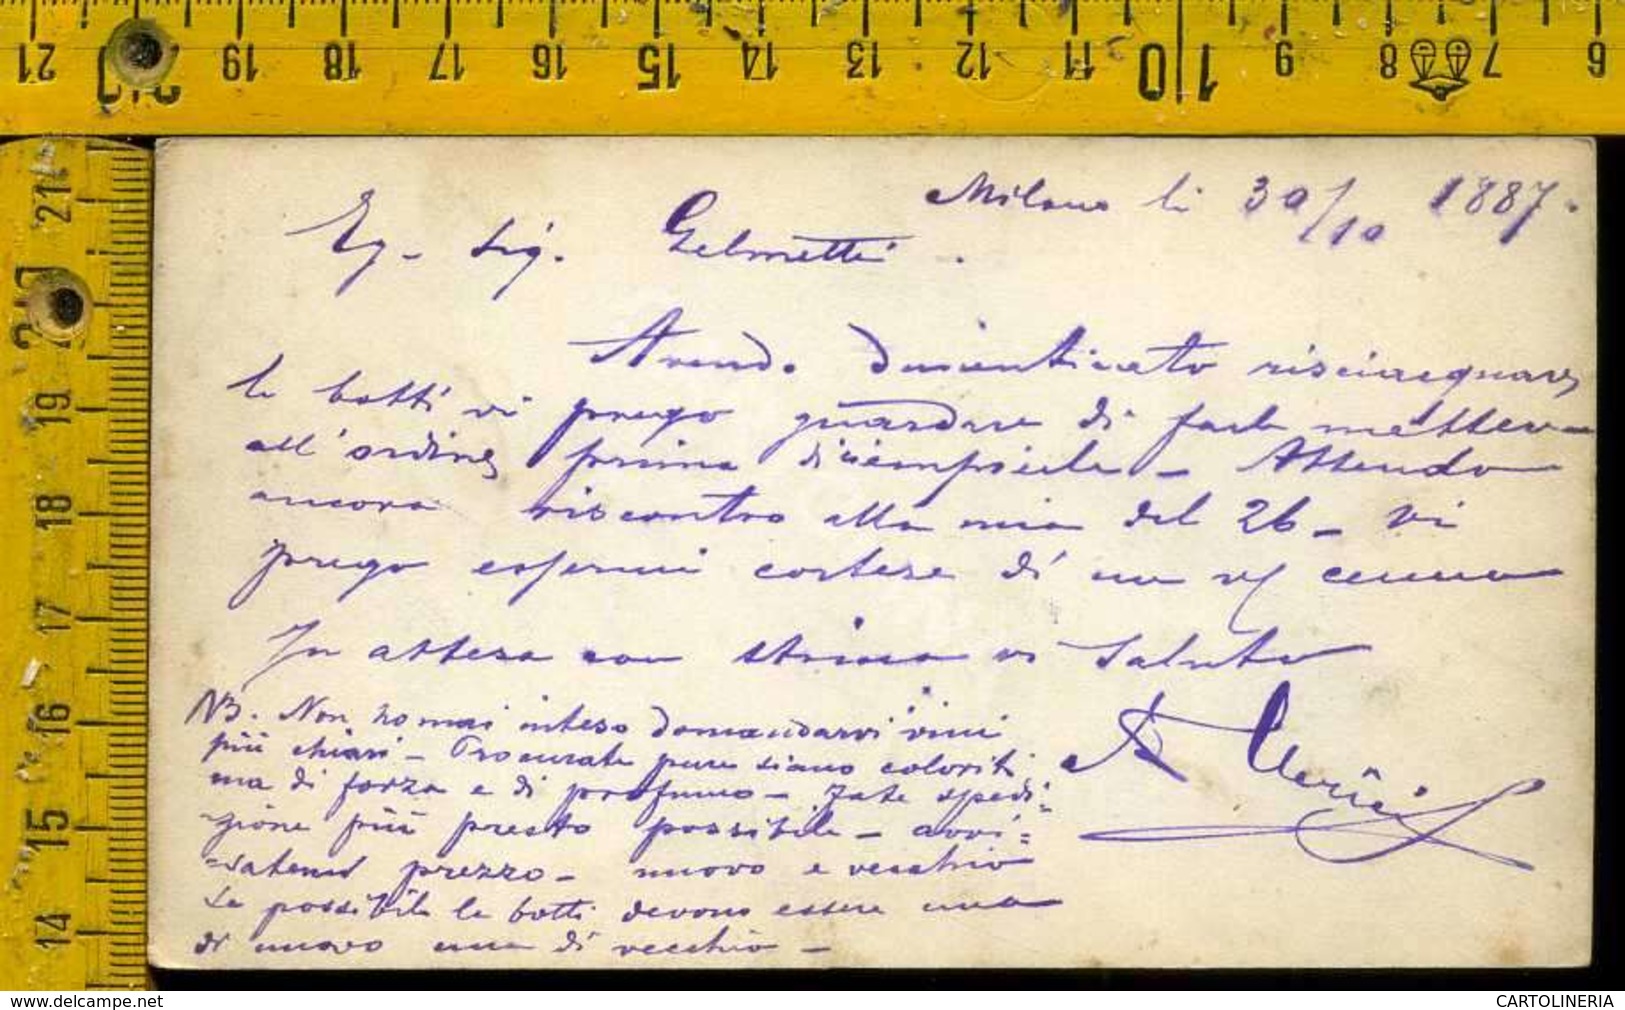 21 20 19 18 17 16 15 14 13 12 11 10 9 8 7 6
21
20
19
18
17
16
15
14
Milano li 30/10 1887.
Eg. Sig. Gelmetti.
Avend. Dimenticato risciacquare
le botti vi prego guardare di farle mettere
all'ordine prima di riempirle - Attendo
ancora riscontro alla mia del 26 - Vi
prego essermi cortese di un vs cenno
In attesa con stima vi saluto
NB. Non ho mai inteso domandarvi vini
più chiari - Procurate pure siano coloriti
ma di forza e di profumo - Fate spedi=
zione più presto possibile - avvi=
satemi prezzo - nuovo e vecchio
Se possibile le botti devono essere una
di nuovo una di vecchio -
www.delcampe.net
CARTOLINERIA